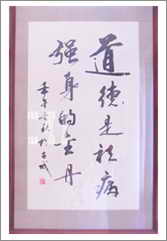 道德是祛病
强身的金丹